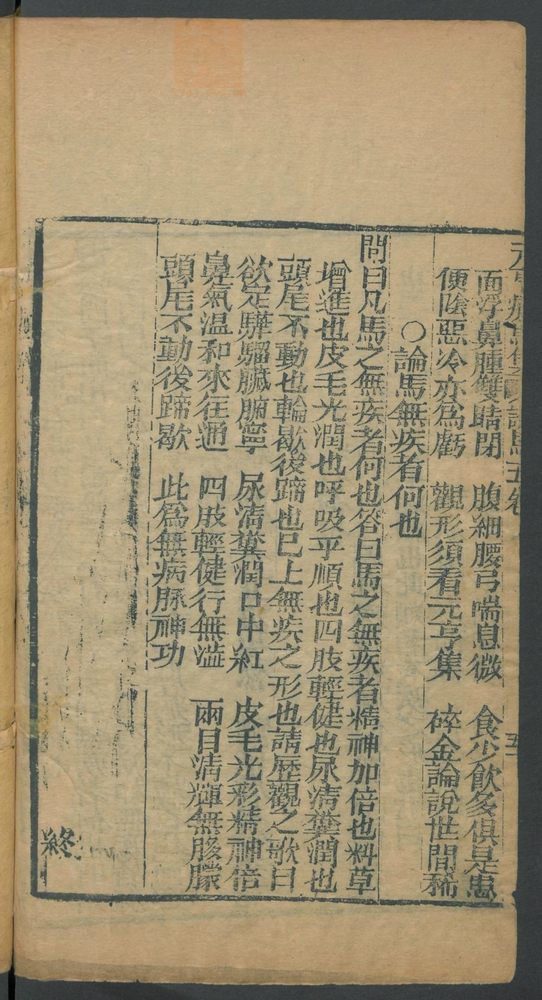 面浮鼻腫雙睛閉　腹細腰弓喘息微　食少飲多俱是患
便陰惡冷亦為虧　觀形須看元亨集　碎金論說世間稀
○論馬無疾者何也
問曰凡馬之無疾者何也答曰馬之無疾者精神加倍也料草
增進也皮毛光潤也呼吸平順也四肢輕健也尿清糞潤也
頭尾不動也輪歇後蹄也已上無疾之形也請歷觀之歌曰
欲定驊騮臟腑寧　尿清糞潤口中紅　皮毛光彩精神倍
鼻氣溫和來往通　四肢輕健行無溢　兩目清輝無朦朧
頭尾不動後蹄歇　此為無病脉神功
終